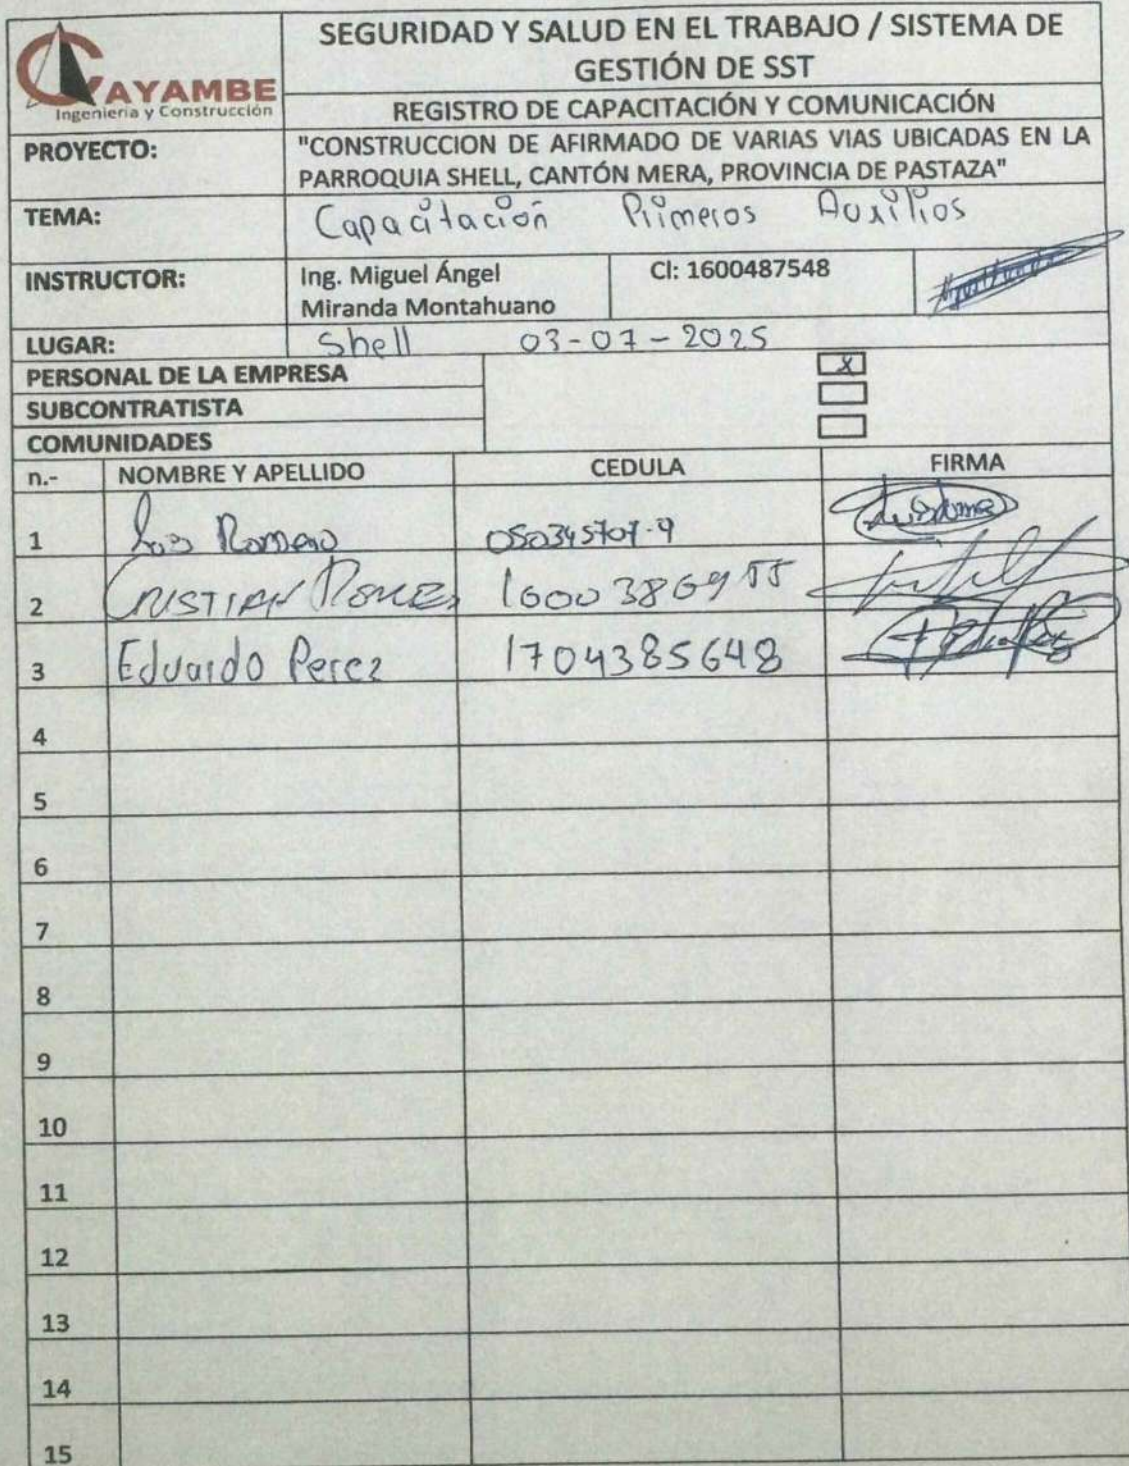 CAYAMBE
Ingeniería y Construcción
SEGURIDAD Y SALUD EN EL TRABAJO / SISTEMA DE
GESTIÓN DE SST
REGISTRO DE CAPACITACIÓN Y COMUNICACIÓN
PROYECTO:
"CONSTRUCCION DE AFIRMADO DE VARIAS VIAS UBICADAS EN LA
PARROQUIA SHELL, CANTÓN MERA, PROVINCIA DE PASTAZA"
TEMA: Capacitación Primeros Auxilios
INSTRUCTOR: Ing. Miguel Ángel CI: 1600487548
Miranda Montahuano
LUGAR: Shell 03-07-2025
PERSONAL DE LA EMPRESA X
SUBCONTRATISTA
COMUNIDADES
n.- NOMBRE Y APELLIDO CEDULA FIRMA
1 Luis Romero
2 CRISTIAN
3 Eduardo Perez 1704385648
4
5
6
7
8
9
10
11
12
13
14
15